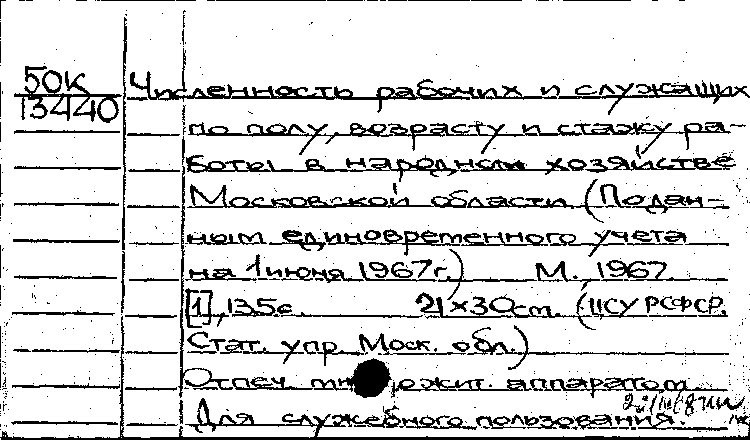 50К Численность рабочих и служащих
13440
по полу, возрасту и стажу ра-
боты в народном хозяйстве
Московской области (По дан-
ным единовременного учета
на 1 июня 1967г.) М., 1967.
[1], 135с. 21×30см. (ЦСУ РСФСР.
Стат. упр. Моск. обл.)
Отпеч. аппаратом
Для служебного пользования.